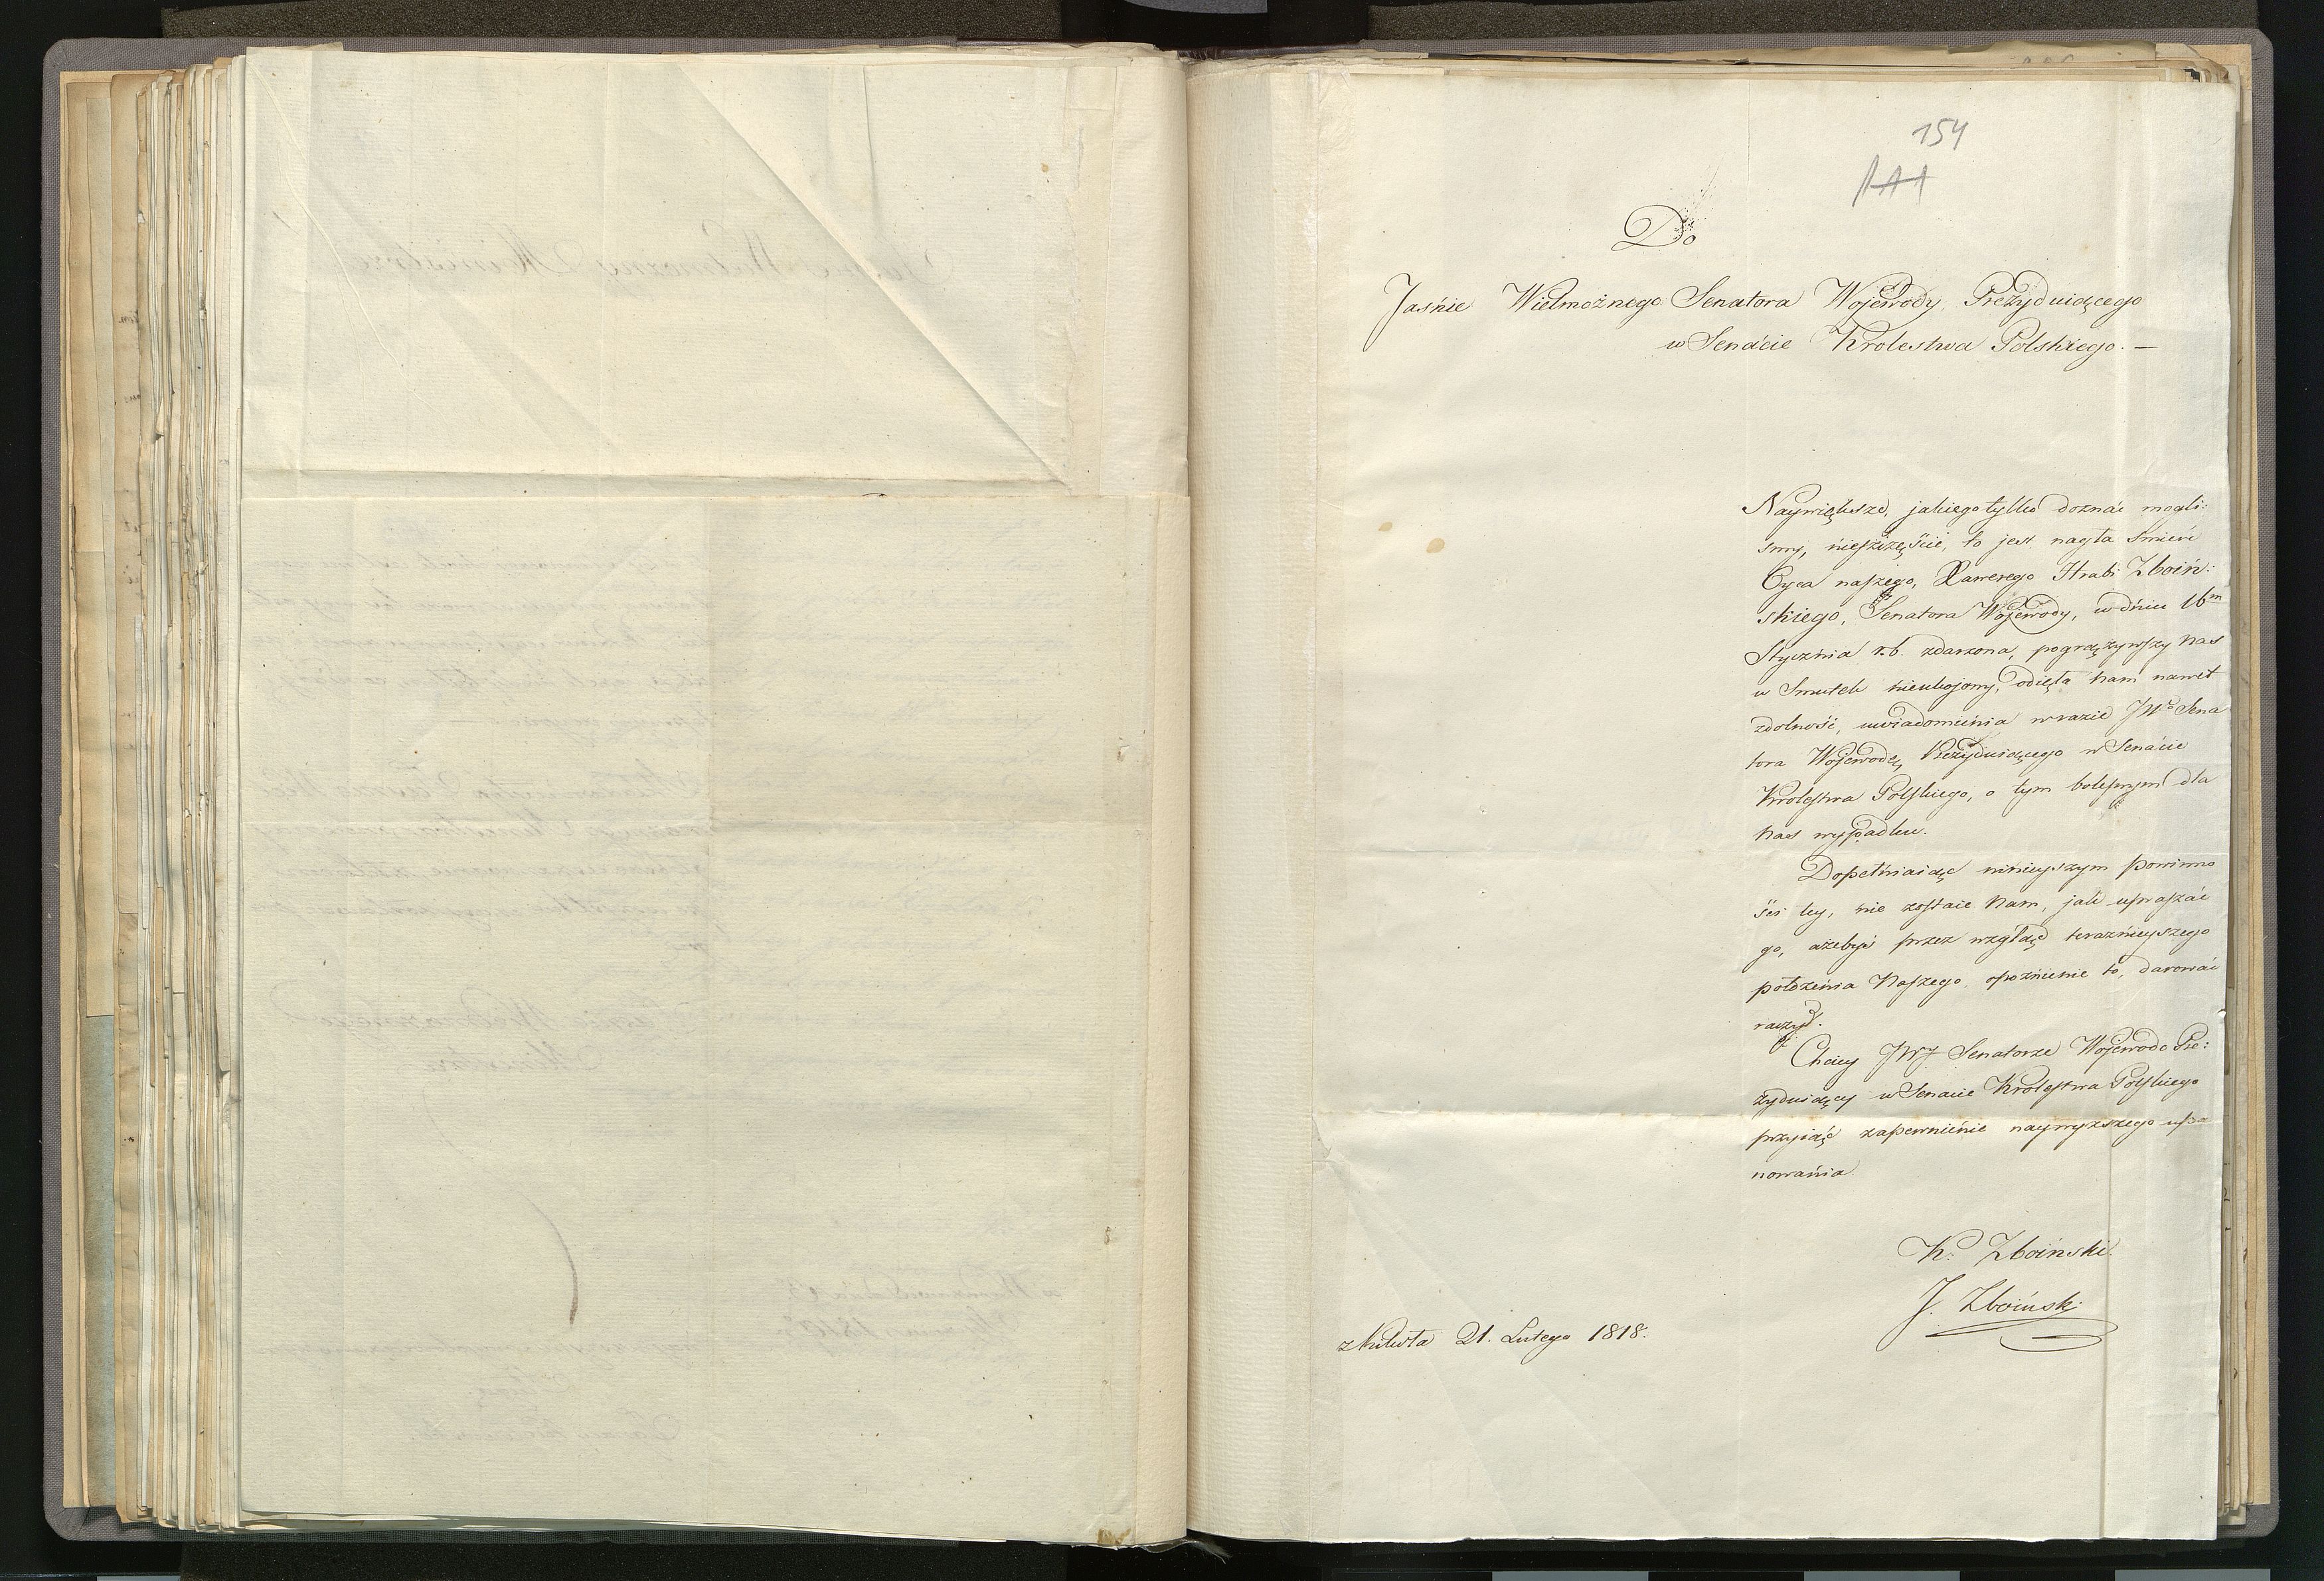 154
Do
Jaśnie Wielmożnego Senatora Wojewody Prezyduiącego
w Senacie Krolestwa Polskiego. —
Naywiększe, jakiego tylko doznać mogli:
smy, nieszczęście, to jest nagła śmierć
Oyca naszego, Xawerego Hrabi Zboiń:
skiego, Senatora Wojewody, w dniu 16m
Stycznia r.b. zdarzona, pogrążywszy nas
w Smutek nieukojony, odięła nam nawet
zdolność, uwiadomienia w razie JWo Sena
tora Wojewodę Prezyduiącego w Senacie
Krolestwa Polskiego, o tym bolesnym dla
nas wypadku.
Dopełniaiąc ninieyszym powinno
ści tey, nie zostaie nam, jak upraszać
go, ażebyś przez wzgląd teraznieyszego
położenia Naszego, opoznienie to, darować
raczył.
Chciey JWJ Senatorze Wojewodo Pre:
zyduiący w Senacie Krolestwa Polskiego
przyiąć zapewnienie naywyższego usza
nowania.
K. Zboiński
J. Zboiński
21. Lutego 1818.